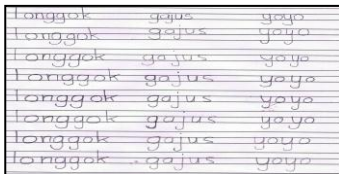 longgok gajus yoyo
longgok gajus yoyo
longgok gajus yoyo
longgok gajus yoyo
longgok gajus yoyo
longgok gajus yoyo
longgok gajus yoyo
longgok gajus yoyo